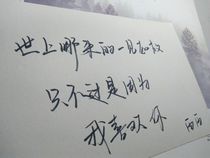 世上哪来的一见如故
只不过是因为
我喜欢你